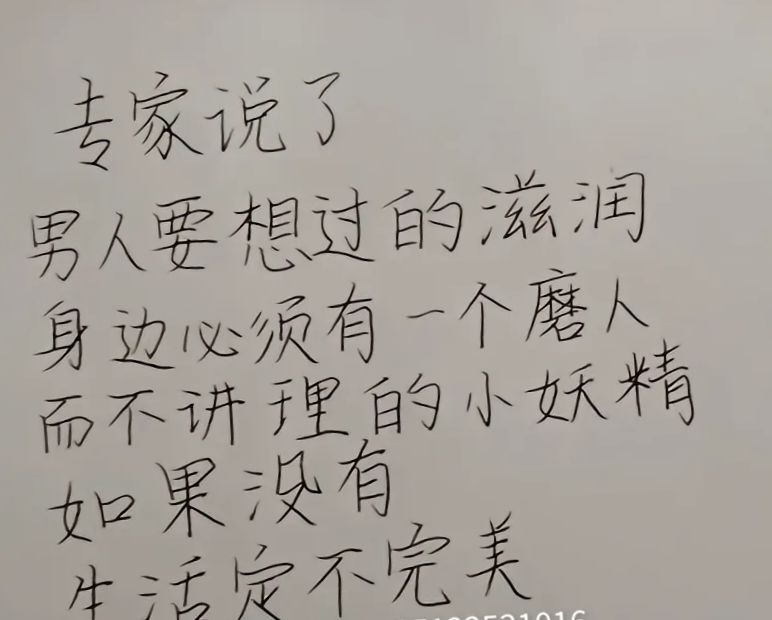 专家说了
男人要想过的滋润
身边必须有一个磨人
而不讲理的小妖精
如果没有
生活定不完美